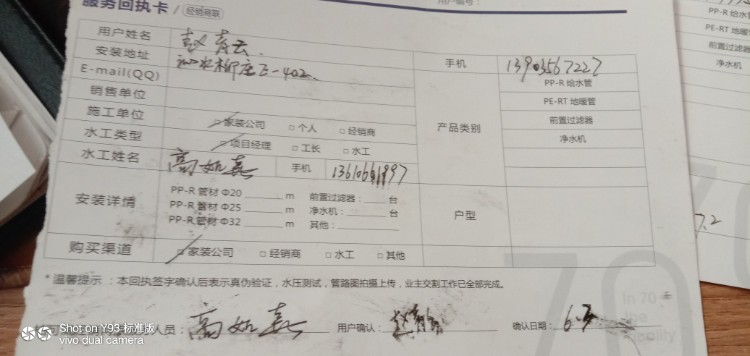 服务回执卡 / 经销商联
用户编号：
用户姓名 赵青云
安装地址 柳庄E-402 手机 13903567227
E-mail(QQ)
销售单位
施工单位 家装公司 □ 个人 □ 经销商
水工类型 项目经理 □ 工长 □ 水工
水工姓名 高如意 手机
产品类别
PP-R 给水管
PE-RT 地暖管
前置过滤器
净水机
安装详情
PP-R 管材 Φ20 m 前置过滤器： 台
PP-R 管材 Φ25 m 净水机： 台
PP-R 管材 Φ32 m 其他：
户型
购买渠道 家装公司 □ 经销商 □ 水工 □ 其他
*温馨提示：本回执签字确认后表示真伪验证，水压测试，管路图拍摄上传，业主交割工作已全部完成。
人员： 高如意 用户确认： 确认日期：
PP-R 给水管
PE-RT 地暖管
前置过滤器
净水机
7.2
70
In 70
Shot on Y93·标准版
vivo dual camera